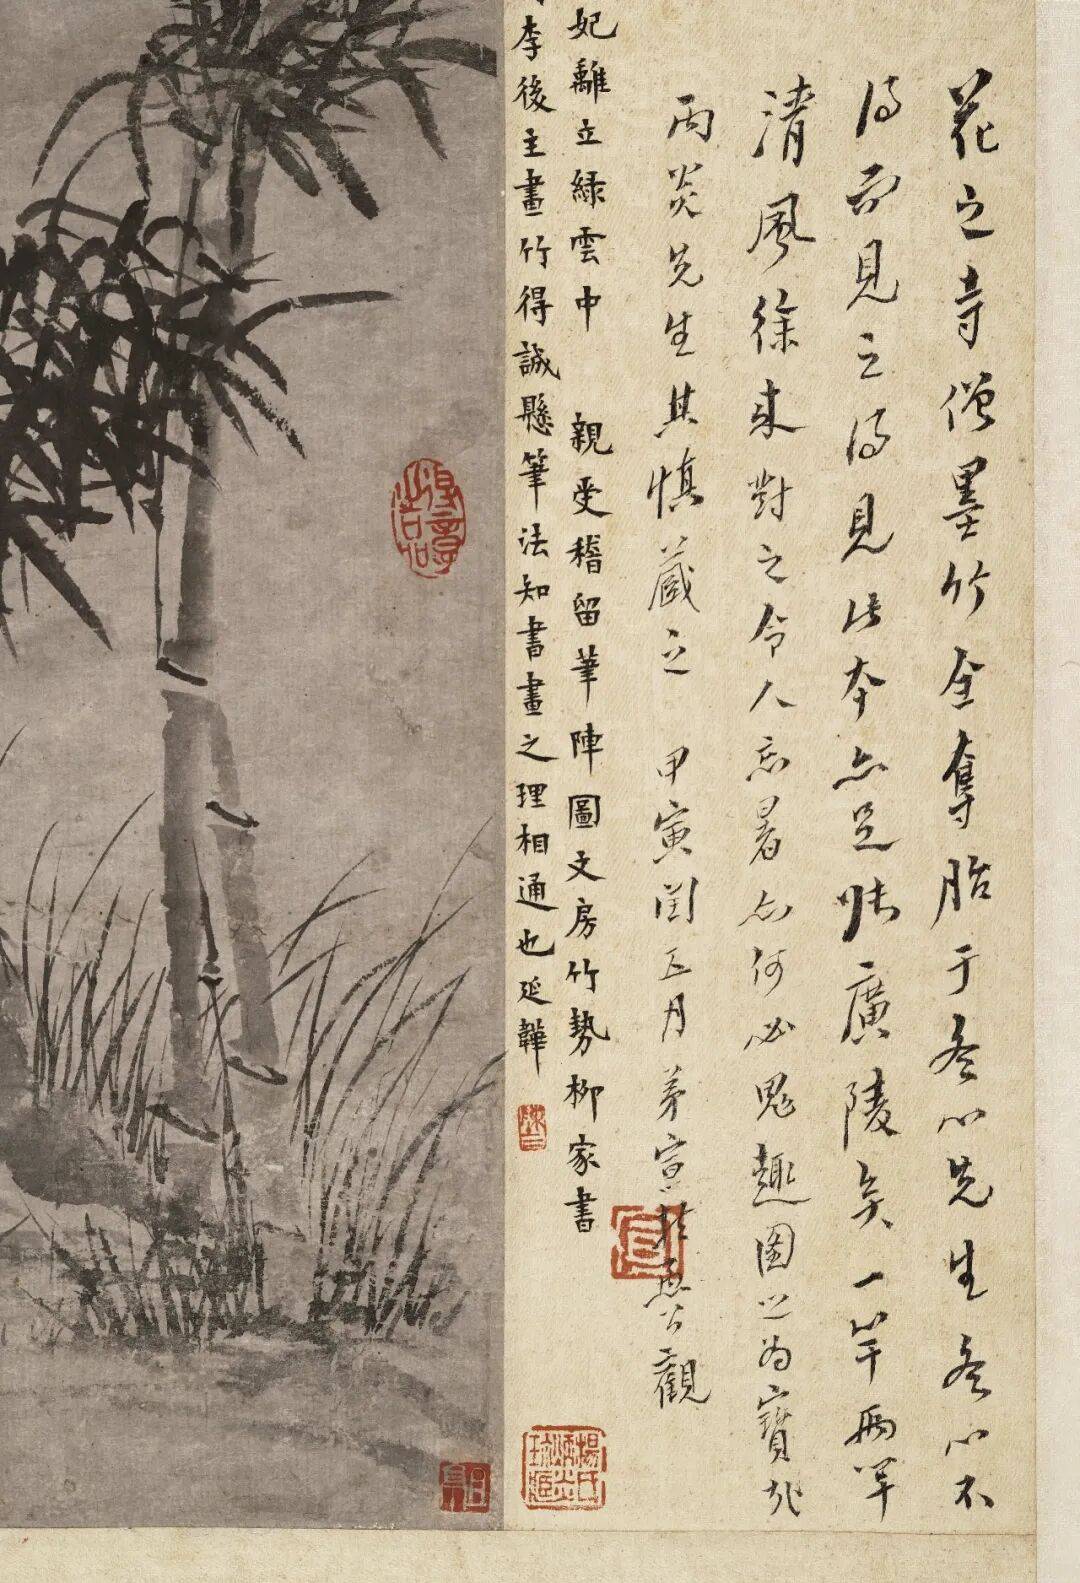 花之寺僧墨竹全奪胎于冬心先生冬心不
得而見之得見此本亦足廣陵矣一竿兩竿
清風徐来對之令人忘暑亦何必鬼趣圖之為寶邪
丙炎先生其慎藏之 甲寅闰五月弟宣哲愚公觀
妃離立綠雲中 親受稽留筆陣圖文房竹勢柳家書
李後主畫竹得誠懸筆法知書畫之理相通也延韡
得意之品
楊氏炳炎珍藏